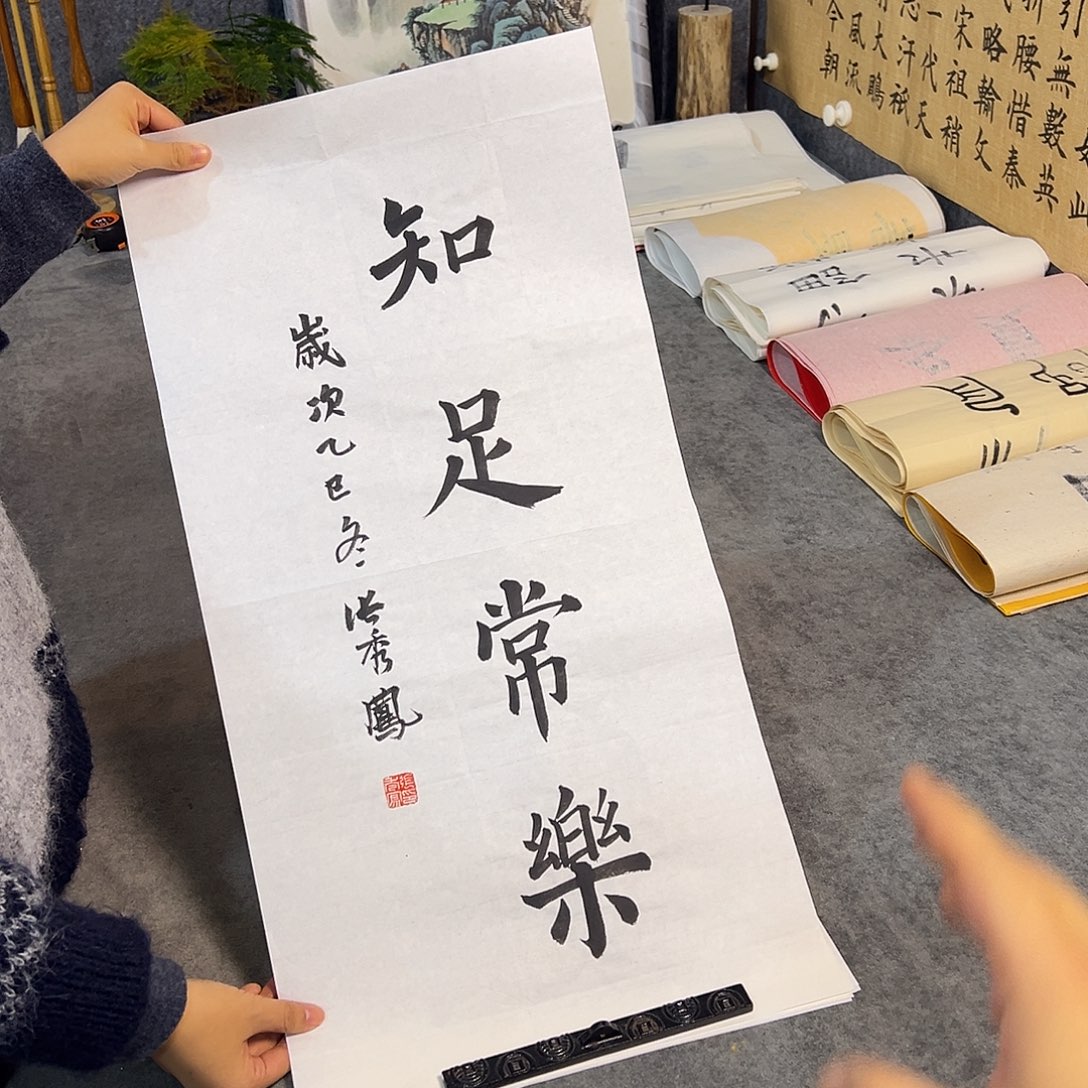 知足常樂
歲次乙巳冬張秀鳳
如此
引無數英
折腰惜秦
略輸文
宋祖稍
一代天
汗祇
大鵰
風流
今朝